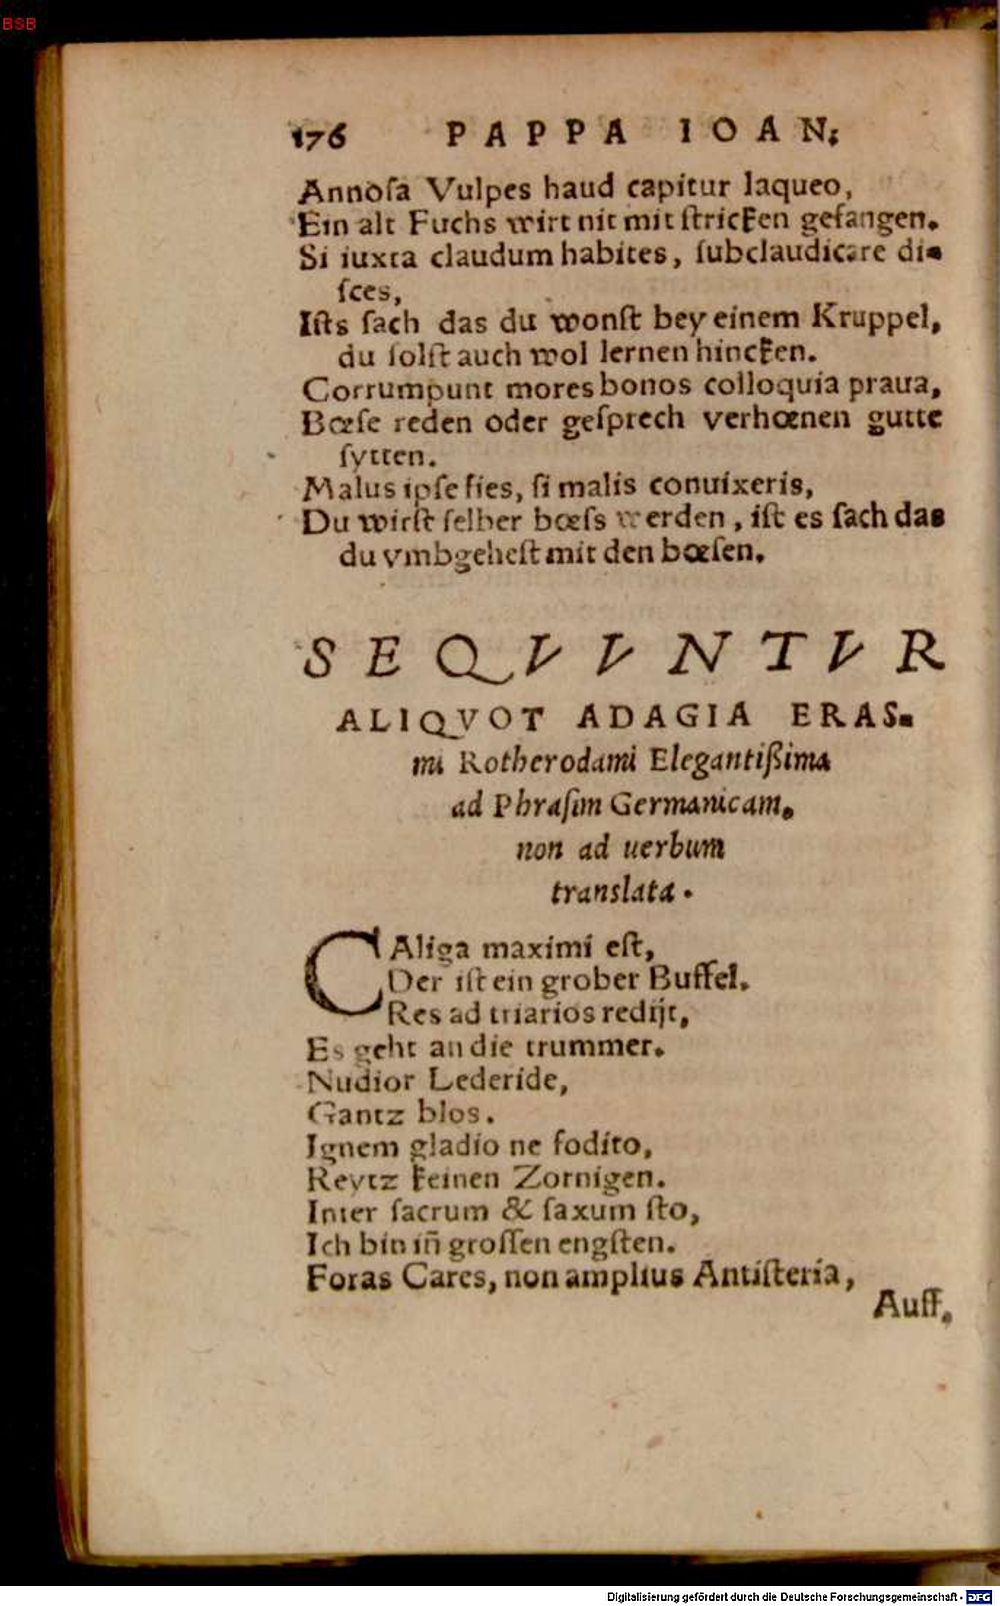 BSB
176 PAPPA IOAN;
Annoſa Vulpes haud capitur laqueo,
Ein alt Fuchs wirt nit mit ſtricken gefangen.
Si iuxta claudum habites, ſubclaudicare di-
ſces,
Iſts ſach das du wonſt bey einem Kruppel,
du ſolſt auch wol lernen hincken.
Corrumpunt mores bonos colloquia praua,
Bœſe reden oder geſprech verhœnen gutte
ſytten.
Malus ipſe fies, ſi malis conuixeris,
Du wirſt ſelber bœſs werden, iſt es ſach das
du vmbgeheſt mit den bœſen.
SEQVVNTVR
ALIQVOT ADAGIA ERAS-
mi Rotherodami Elegantißima
ad Phraſim Germanicam.
non ad uerbum
translata.
CAliga maximi eſt,
Der iſt ein grober Buffel.
Res ad triarios redijt,
Es geht an die trummer.
Nudior Lederide,
Gantz blos.
Ignem gladio ne fodito,
Reytz keinen Zornigen.
Inter ſacrum & ſaxum ſto,
Ich bin iñ groſſen engſten.
Foras Cares, non amplius Antiſteria,
Auff.
Digitalisierung gefördert durch die Deutsche Forschungsgemeinschaft - DFG